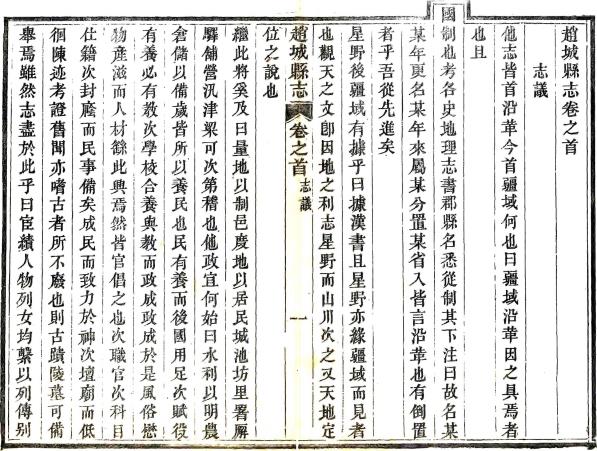 趙城縣志卷之首
志議
他志皆首沿革今首疆域何也曰疆域沿革因之具焉者
也且
國制也考各史地理志書郡縣名悉從制其下注曰故名某
某年更名某年來屬某分置某省入皆言沿革也有倒置
者乎吾從先進矣
星野後疆域有據乎曰據漢書且星野亦緣疆域而見者
也觀天之文卽因地之利志星野而山川次之又天地定
趙城縣志
卷之首
志議
一
位之說也
繼此將奚及曰量地以制邑度地以居民城池坊里署廨
驛舖營汛津梁可次第稽也他政宜何始曰水利以明農
倉儲以備歲皆所以養民也民有養而後國用足次賦役
有養必有教次學校合養與教而政成政成於是風俗懋
物產滋而人材餘此興焉然皆官倡之也次職官次科目
仕籍次封廕而民事備矣成民而致力於神次壇廟而低
徊陳迹考證舊聞亦嗜古者所不廢也則古蹟陵墓可備
舉焉雖然志盡於此乎曰宦績人物列女均繫以列傳別